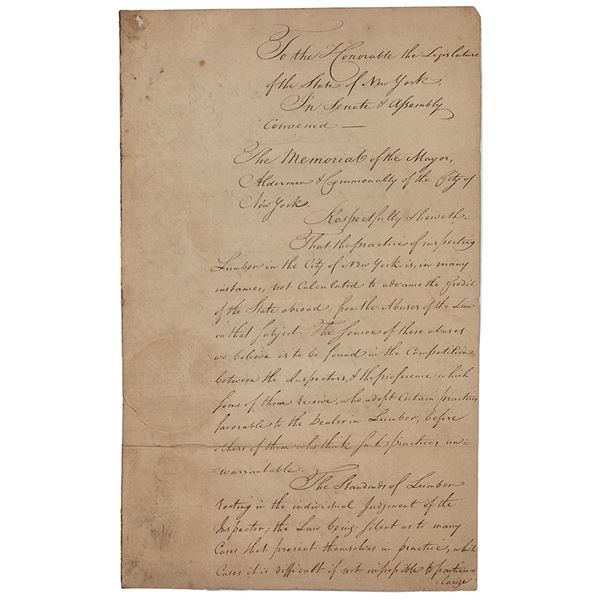 To the Honorable the Legislature
of the State of New York.
In Senate & Assembly
Convened —
The Memorial of the Mayor,
Aldermen & Commonalty of the City of
New York.
Respectfully Sheweth.
That the practice of inspecting
Lumber in the City of New York is, in many
instances, not Calculated to advance the Credit
of the State abroad, from the Abuses of the Law
on that subject. The Source of those abuses
we believe is to be found in the Competition
between the Inspectors, & the preference which
some of them receive, who adopt Certain practices
favorable to the Dealer in Lumber, before
others of them who think such practices un=
=warrantable.
The Standards of Lumber
resting in the individual Judgment of the
Inspector; the Law being silent as to many
Cases that present themselves in practice, which
Cases it is difficult if not impossible to particu=
=larize